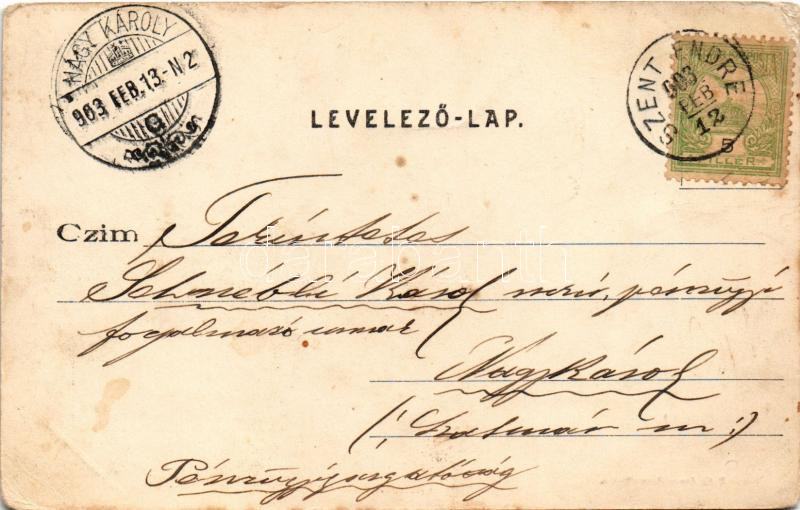 NAGY KÁROLY
903 FEB. 13.-N 2
SZENT ENDRE
903
FEB
12
5
FILLER
LEVELEZŐ-LAP.
Czim Tekintetes
Károly úrnak, pénzügyi
fogalmazó urnak
Nagykároly
(: Szatmár m :)
Pénzügyigazgatóság
darabanth